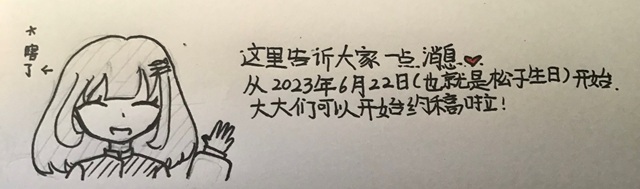 *瞎了←
这里告诉大家一点消息❤
从2023年6月22日(也就是松子生日)开始.
大大们可以开始约稿啦!